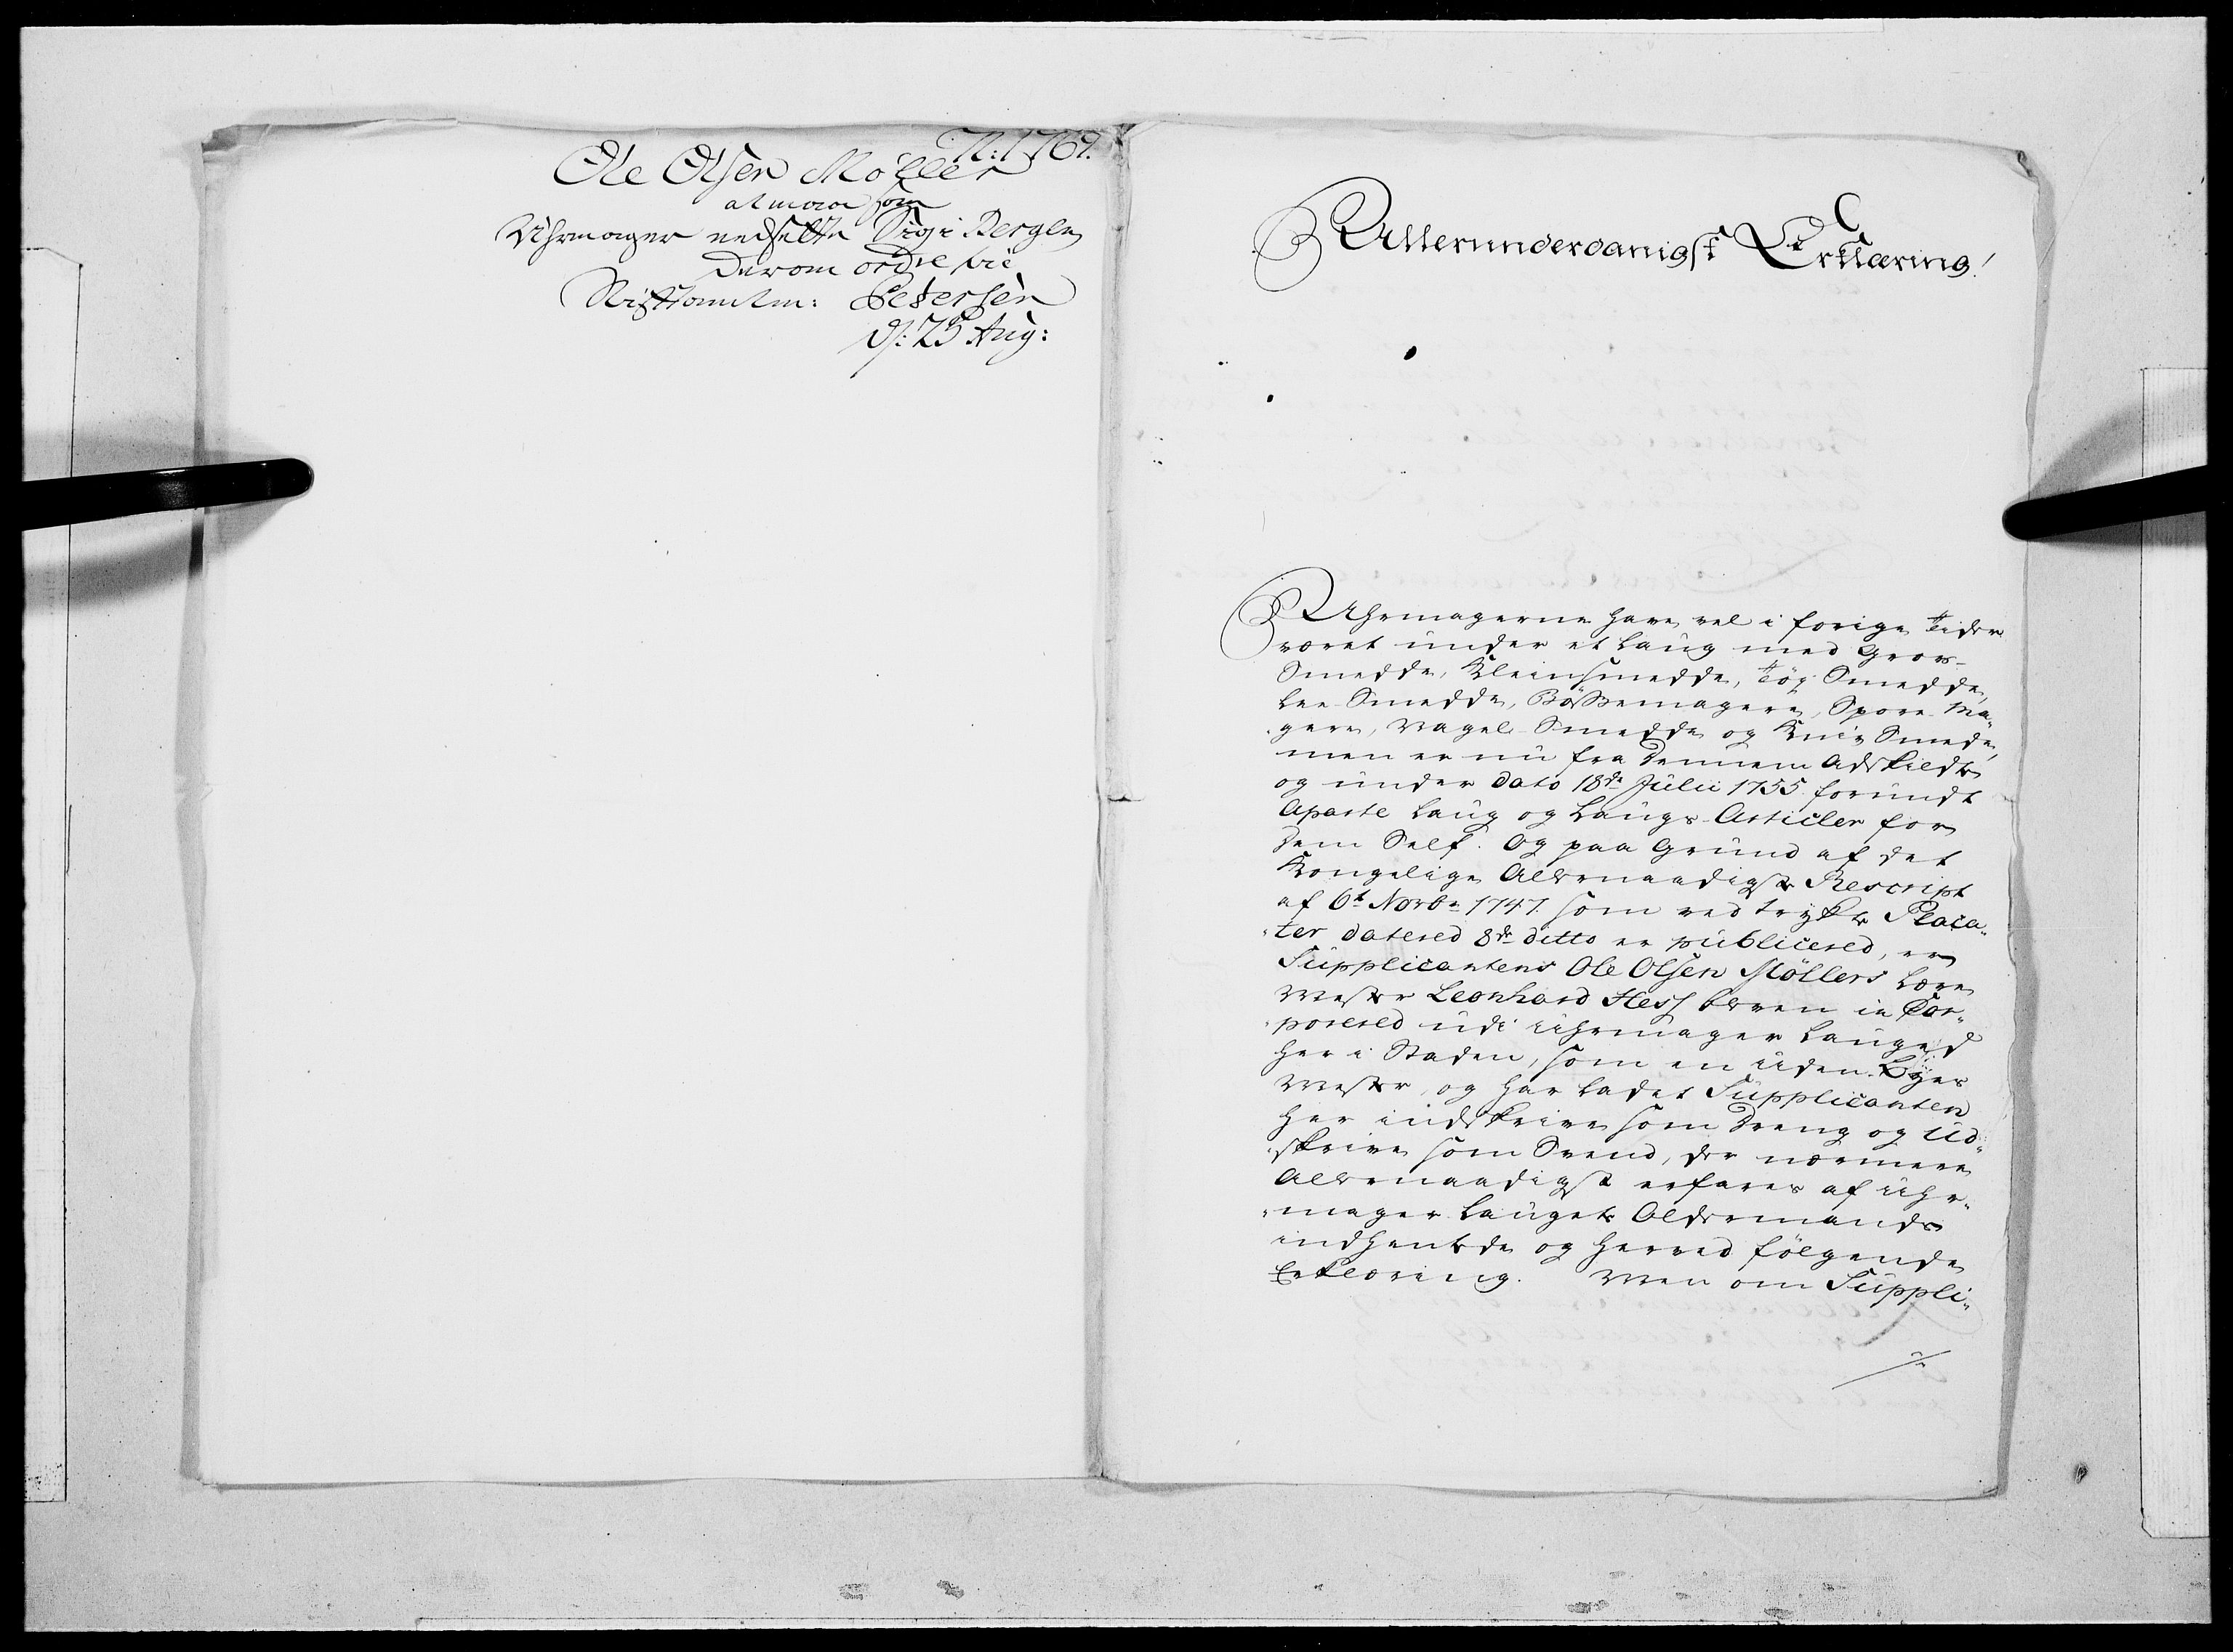 N: 1769.
Ole Olsen Möller
at maa som
Uhrmager nedsette Sig i Bergen
derom ordre til
Stiftamtm: Petersen
d: 25 Aug:
Allerunderdanigst Erklæring!
Uhrmagerne have vel i forige Tider
været under et Laug med Grov-
Smedde, Kleinsmedde, Töy Smedde,
Lee Smedde, Bösßemagere, Spore Ma-
gere, Nagel Smedde og Kniv Smede,
men er nu fra dennem Adskildte
og under dato 18de Julii 1755 forundt
Aparte Laug og Laugs Articler for
dem Self. Og paa Grund af det
Kongelige Allernaadigste Rescript
af 6t Novbr 1747. som ved trykte Placa-
ter datered 8de ditto er publicered, er
Supplicantens Ole Olsen Möllers Lære
Mester Leonhard Hess bleven in Cor-
porered udi Uhrmager Lauged
her i Staden, som en Uden Byes
Mester, og har ladet Supplicanten
her indskrive som Dreng og Ud-
skrive som Svend, der nærmere
Allernaadigst erfares af Uhr-
mager Laugets Oldermands
indhentede og herved fölgende
Erklæring. Men om Suppli-